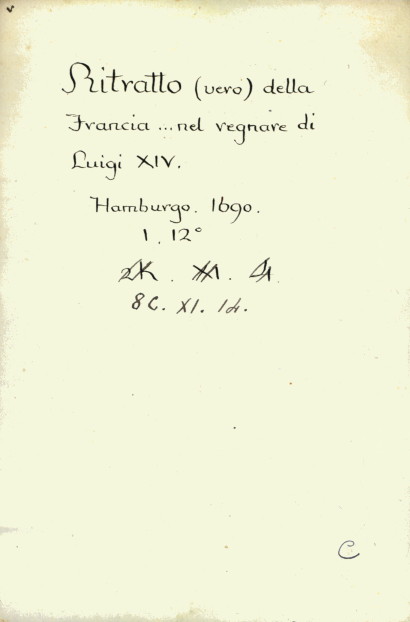 Ritratto (vero) della
Francia ... nel regnare di
Luigi XIV.
Hamburgo. 1690.
1. 12°
86. XI. 14.
C